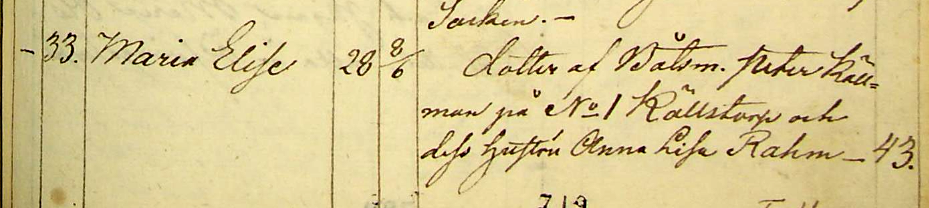 Socken. –
– 33. Maria Elise 28 8/6 dotter af Båtsm. Peter Käll=
man på No 1 Källstorp och
dess hustru Anna Lisa Rahm – 43.
719